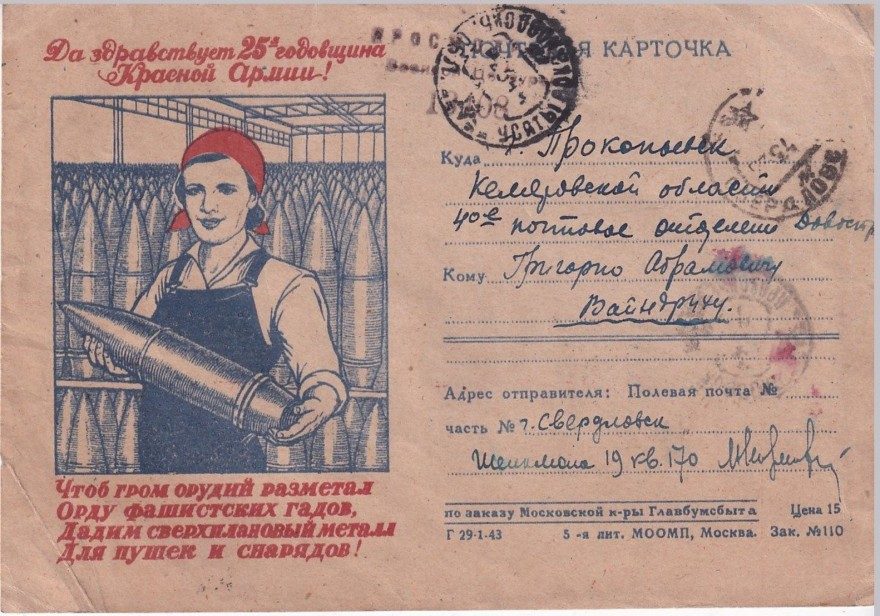 Да здравствует 25ая годовщина
Красной Армии!
ПОЧТОВАЯ КАРТОЧКА
УСЯТЫ
Куда
Прокопьевск
Кемеровской области
40-е почтовое отделение
Кому
Григорию Абрамовичу
Вайндруху.
Адрес отправителя: Полевая почта №
часть № г. Свердловск
19 кв. 170
Чтоб гром орудий разметал
Орду фашистских гадов,
Дадим сверхплановый металл
Для пушек и снарядов!
по заказу Московской к-ры Главбумсбыта Цена 15
Г 29-1-43 5-я лит. МООМП, Москва. Зак. №110